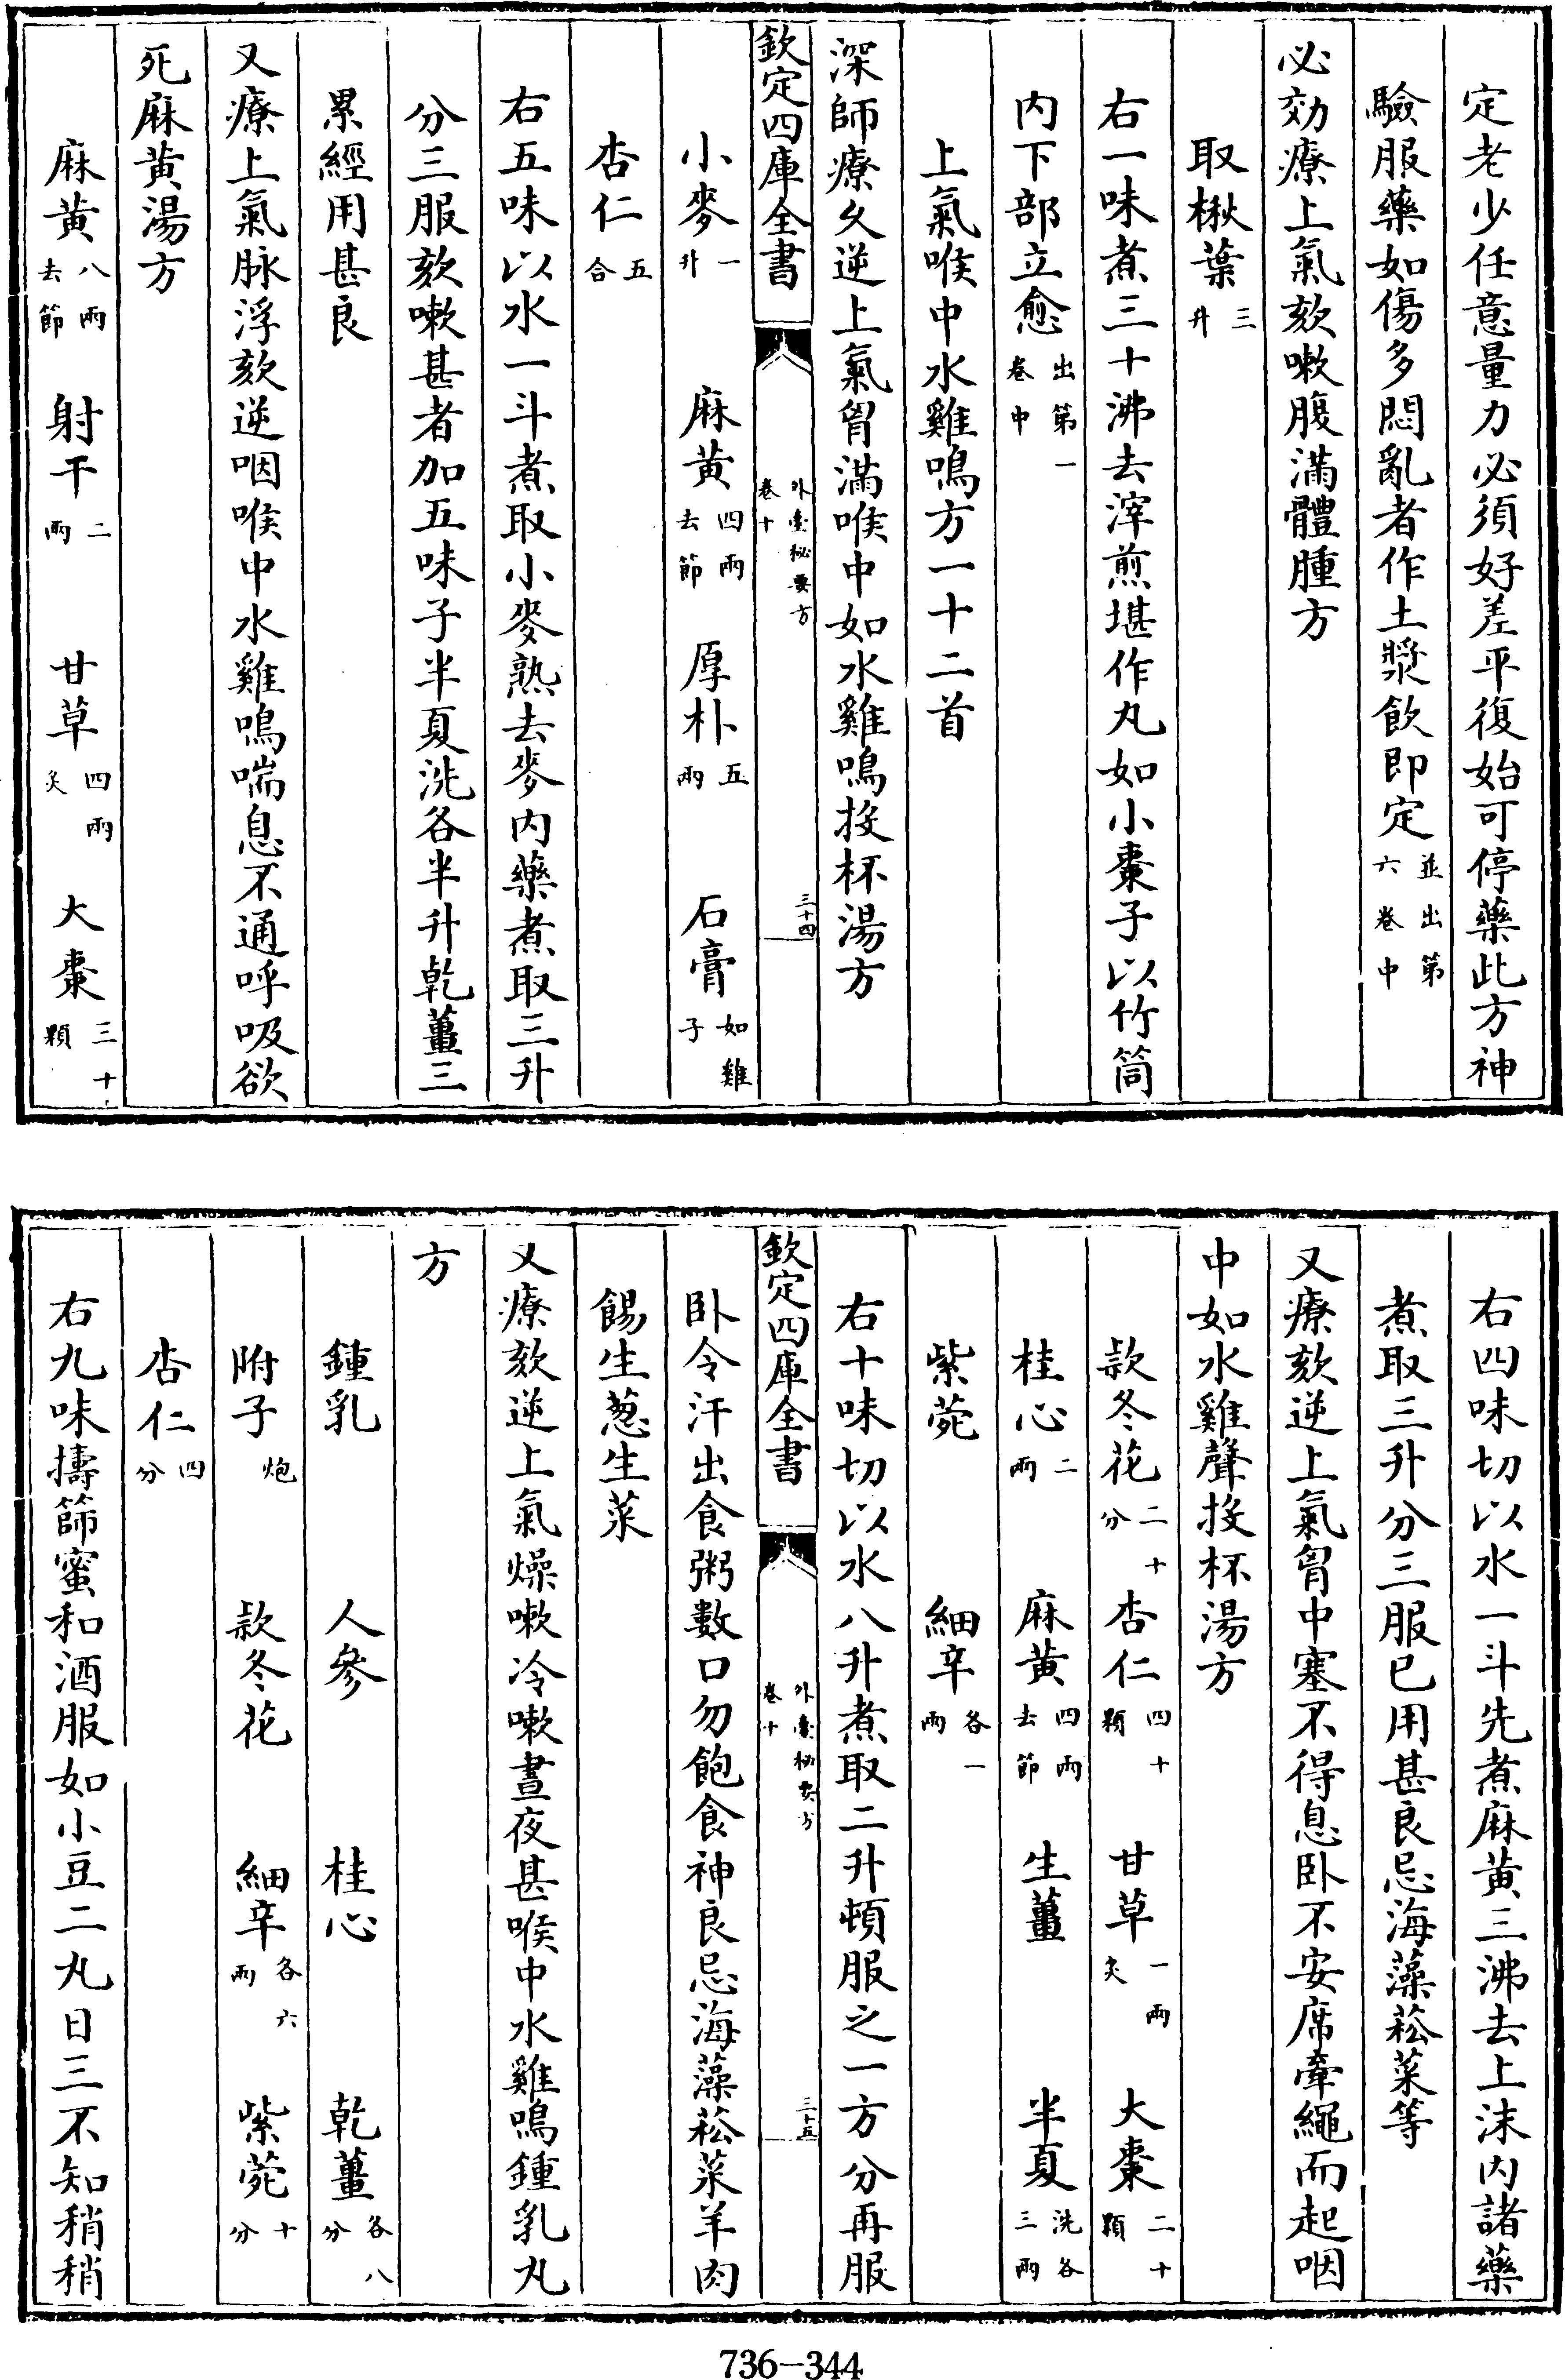 定老少任意量力必須好差平復始可停藥此方神
驗服藥如傷多悶亂者作土漿飲即定並出第六卷中
必効療上氣欬嗽腹滿體腫方
取楸葉三升
右一味煮三十沸去滓煎堪作丸如小棗子以竹筒
内下部立愈出第一卷中
上氣喉中水雞鳴方一十二首
深師療久逆上氣胷滿喉中如水雞鳴投杯湯方
欽定四庫全書
外臺秘要方
卷十
三十四
小麥一升 麻黄四兩去節 厚朴五兩 石膏如雞子
杏仁五合
右五味以水一斗煮取小麥熟去麥内藥煮取三升
分三服欬嗽甚者加五味子半夏洗各半升乾薑三
累經用甚良
又療上氣脉浮欬逆咽喉中水雞鳴喘息不通呼吸欲
死麻黄湯方
麻黄八兩去節 射干二兩 甘草四兩炙 大棗三十顆
右四味切以水一斗先煮麻黄三沸去上沫内諸藥
煮取三升分三服已用甚良忌海藻菘菜等
又療欬逆上氣胷中塞不得息卧不安席牽繩而起咽
中如水雞聲投杯湯方
款冬花二十分 杏仁四十顆 甘草一兩炙 大棗二十顆
桂心二兩 麻黄四兩去節 生薑 半夏洗各三兩
紫菀 細辛各一兩
右十味切以水八升煮取二升頓服之一方分再服
欽定四庫全書
外臺秘要方
卷十
三十五
卧令汗出食粥數口勿飽食神良忌海藻菘菜羊肉
餳生葱生菜
又療欬逆上氣燥嗽冷嗽晝夜甚喉中水雞鳴鍾乳丸
方
鍾乳 人參 桂心 乾薑各八分
附子炮 款冬花 細辛各六兩 紫菀十分
杏仁四分
右九味擣篩蜜和酒服如小豆二丸日三不知稍稍
736-344